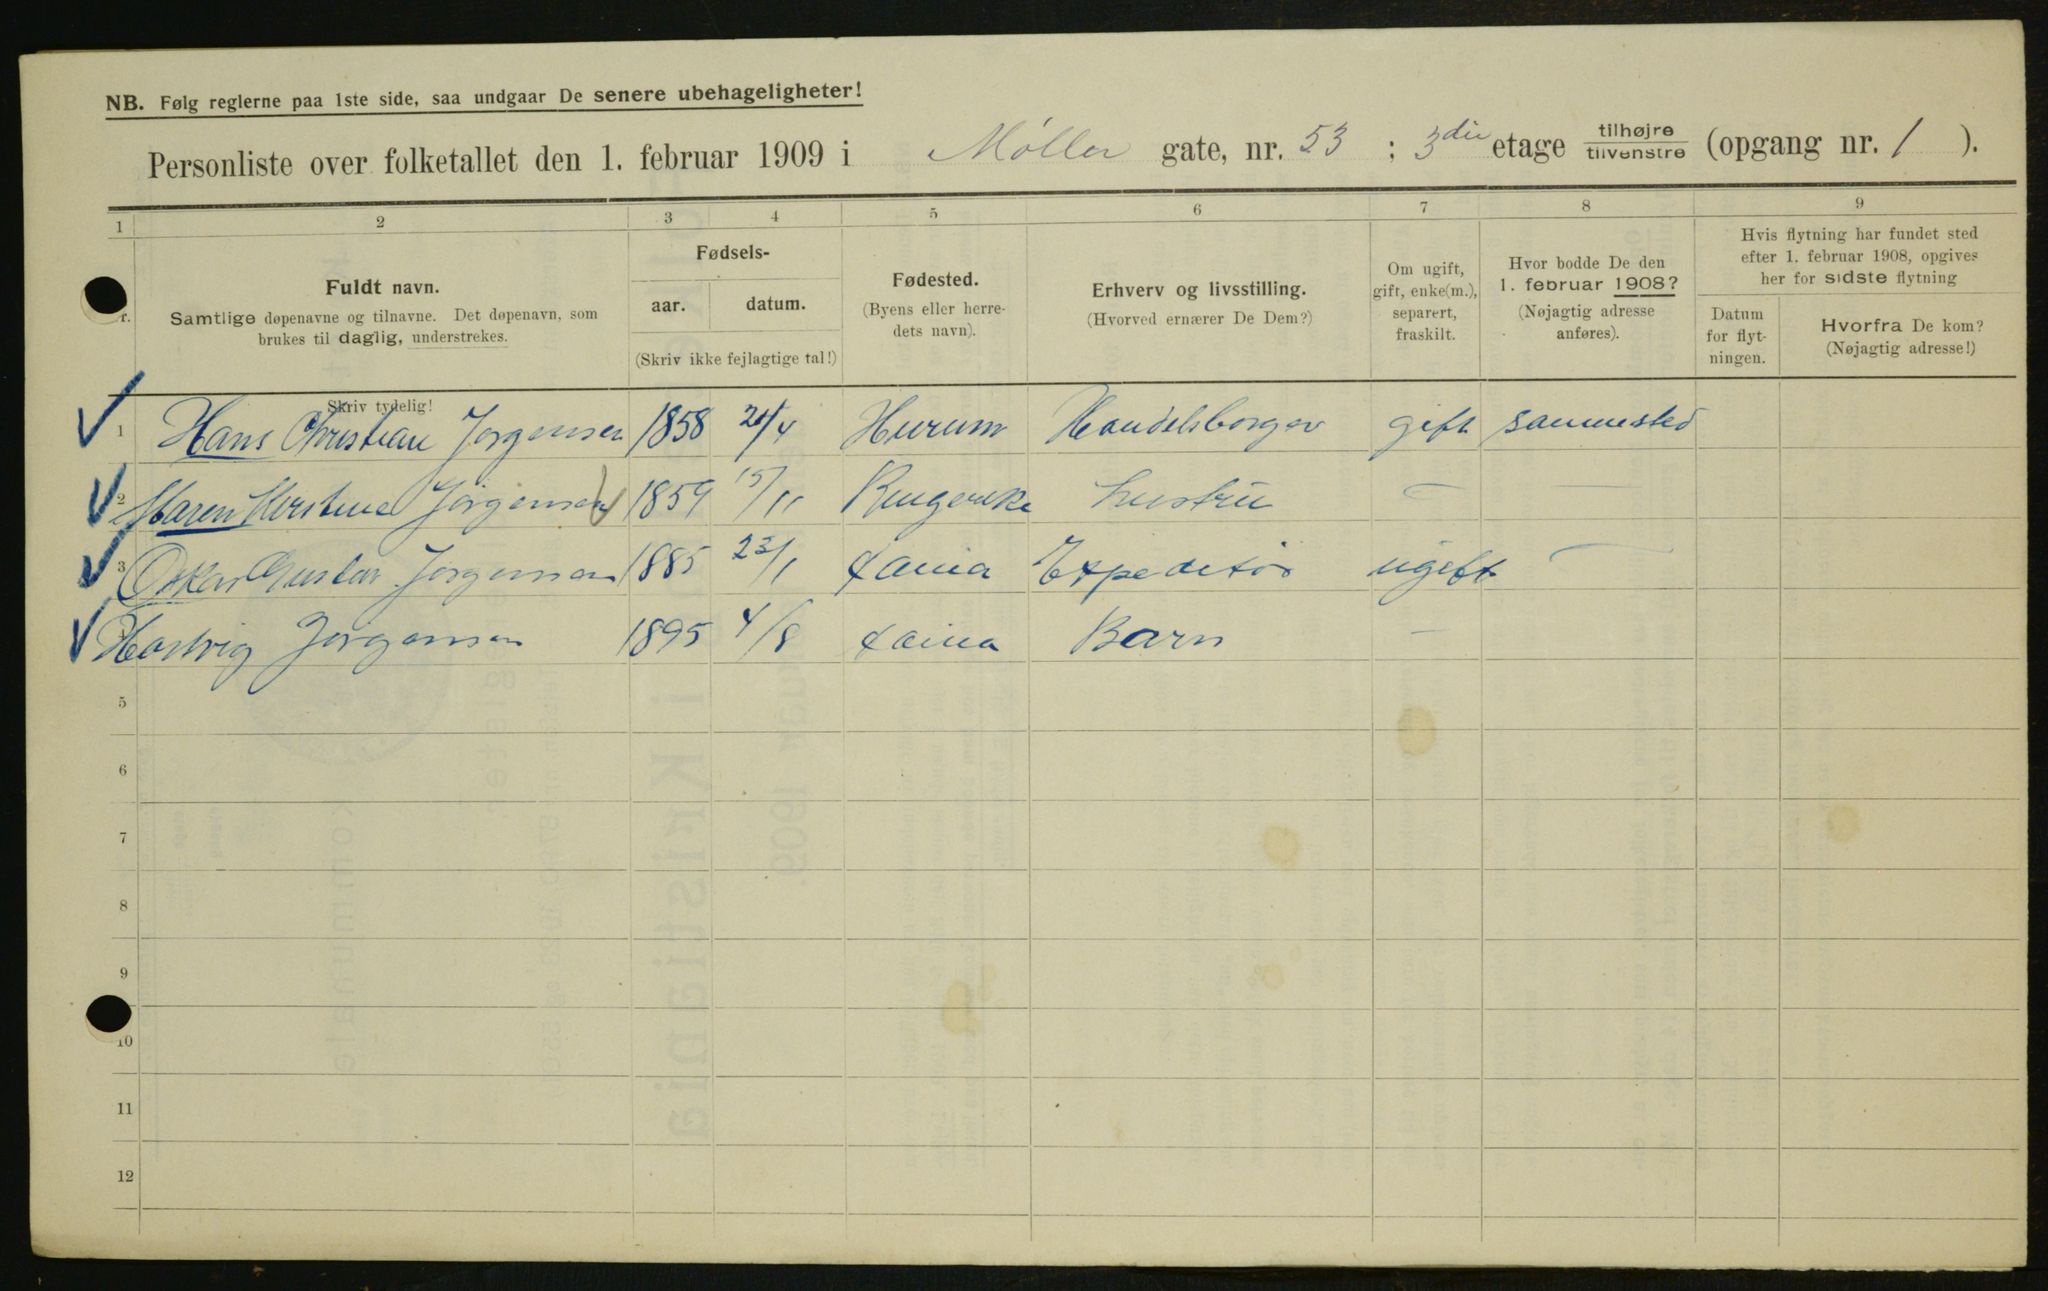 NB. Følg reglerne paa 1ste side, saa undgaar De senere ubehageligheter!
Personliste over folketallet den 1. februar 1909 i Møller gate, nr. 53 ; 3die etage tilhøjre / tilvenstre (opgang nr. 1 ).
1 2 3 4 5 6 7 8 9
Nr.
Fuldt navn.
Samtlige døpenavne og tilnavne. Det døpenavn, som
brukes til daglig, understrekes.
Skriv tydelig!
Fødsels-
aar. datum.
(Skriv ikke fejlagtige tal!)
Fødested.
(Byens eller herre-
dets navn).
Erhverv og livsstilling.
(Hvorved ernærer De Dem?)
Om ugift,
gift, enke(m.),
separert,
fraskilt.
Hvor bodde De den
1. februar 1908?
(Nøjagtig adresse
anføres).
Hvis flytning har fundet sted
efter 1. februar 1908, opgives
her for sidste flytning
Datum
for flyt-
ningen.
Hvorfra De kom?
(Nøjagtig adresse!)
1 Hans Christian Jørgensen 1858 /4 Hurum Handelsborger gift sammested
2 Maren Kirstine Jørgensen 1859 15/11 Ringerike hustru — —
3 Oskar Gustav Jørgensen 1885 23/1 Xania Expeditør ugift —
4 Hartvig Jørgensen 1895 4/8 Xania Barn —
5
6
7
8
9
10
11
12